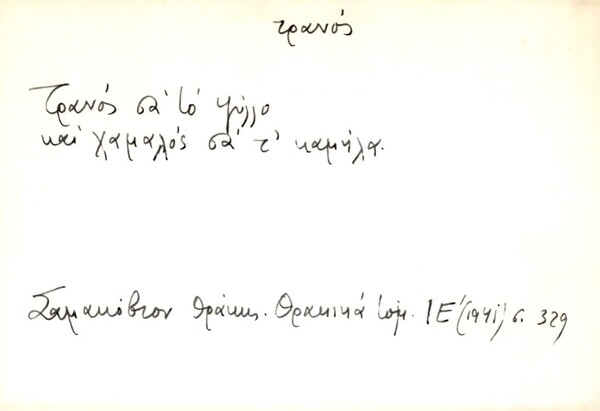 τρανός
Τρανός σα' τό ψύλλο
και χαμαλός σα' τ' καμήλα.
Σαμακόβιον Θράκης. Θρακικά τόμ. ΙΕ' (1941) σ. 329